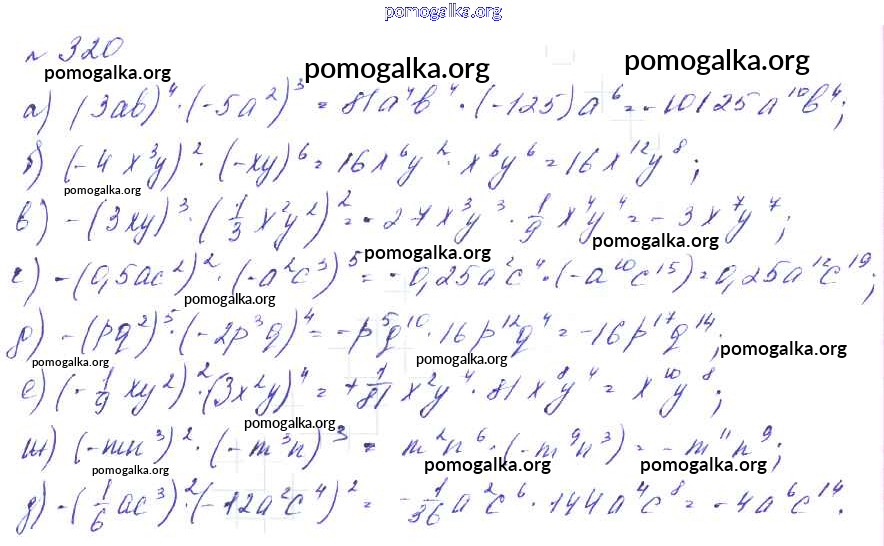 pomogalka.org
№ 320
pomogalka.org pomogalka.org pomogalka.org
а) (3ab)⁴·(-5a²)³ = 81a⁴b⁴·(-125)a⁶ = -10125a¹⁰b⁴;
б) (-4x³y)²·(-xy)⁶ = 16x⁶y²·x⁶y⁶ = 16x¹²y⁸;
pomogalka.org
в) -(3xy)³·(1/3 x²y²)² = -27x³y³·1/9 x⁴y⁴ = -3x⁷y⁷;
pomogalka.org pomogalka.org
г) -(0,5ac²)²·(-a²c³)⁵ = -0,25a²c⁴·(-a¹⁰c¹⁵) = 0,25a¹²c¹⁹;
pomogalka.org
д) -(pq²)⁵·(-2p³q)⁴ = -p⁵q¹⁰·16p¹²q⁴ = -16p¹⁷q¹⁴;
pomogalka.org pomogalka.org pomogalka.org
е) (-1/9 xy²)²·(3x²y)⁴ = +1/81 x²y⁴·81x⁸y⁴ = x¹⁰y⁸;
pomogalka.org
ж) (-mn³)²·(-m³n)³ = m²n⁶·(-m⁹n³) = -m¹¹n⁹;
pomogalka.org pomogalka.org pomogalka.org
з) -(1/6 ac³)²·(-12a²c⁴)² = -1/36 a²c⁶·144a⁴c⁸ = -4a⁶c¹⁴.